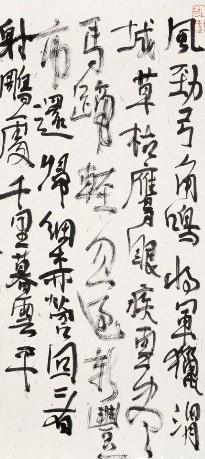 風勁弓角鳴將軍獵渭
城草枯鷹眼疾雪盡
馬蹄輕忽過新豐
市還歸細柳營回看
射鵰處千里暮雲平